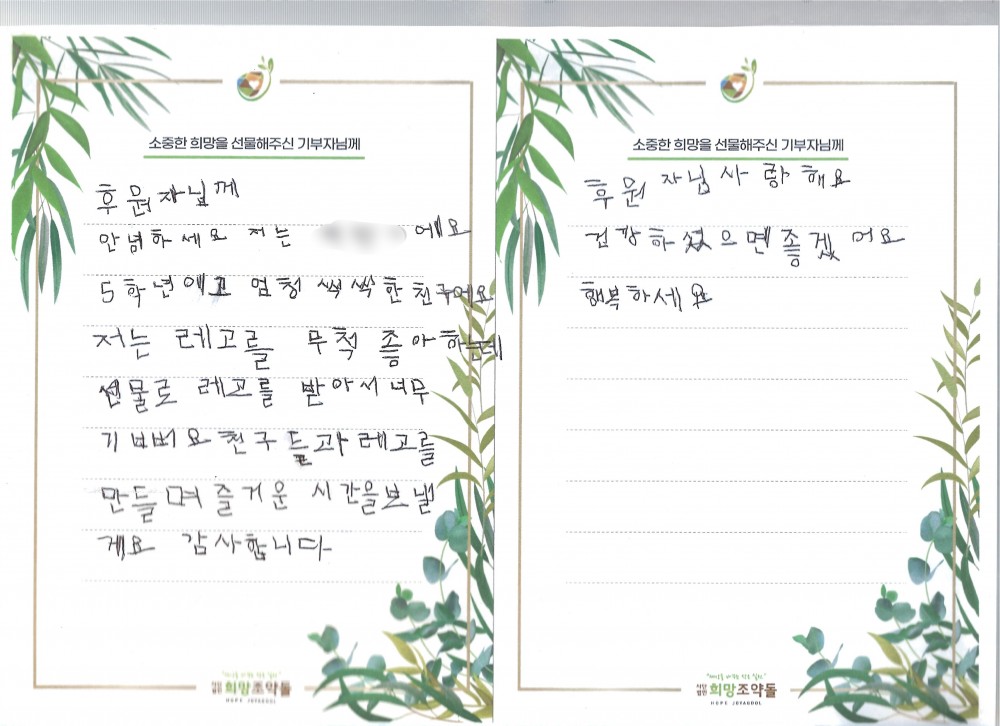 소중한 희망을 선물해주신 기부자님께
후원자님께
안녕하세요 저는 에요
5학년애고 엄청 씩씩한친구에요
저는 레고를 무척 좋아하는데
선물로 레고를 받아서 너무
기뻐요 친구들과 레고를
만들며 즐거운 시간을보낼
게요 감사합니다
사단법인 희망조약돌
HOPE JOYAGDOL
소중한 희망을 선물해주신 기부자님께
후원자님사랑해요
건강하셨으면좋겠어요
행복하세요
사단법인 희망조약돌
HOPE JOYAGDOL